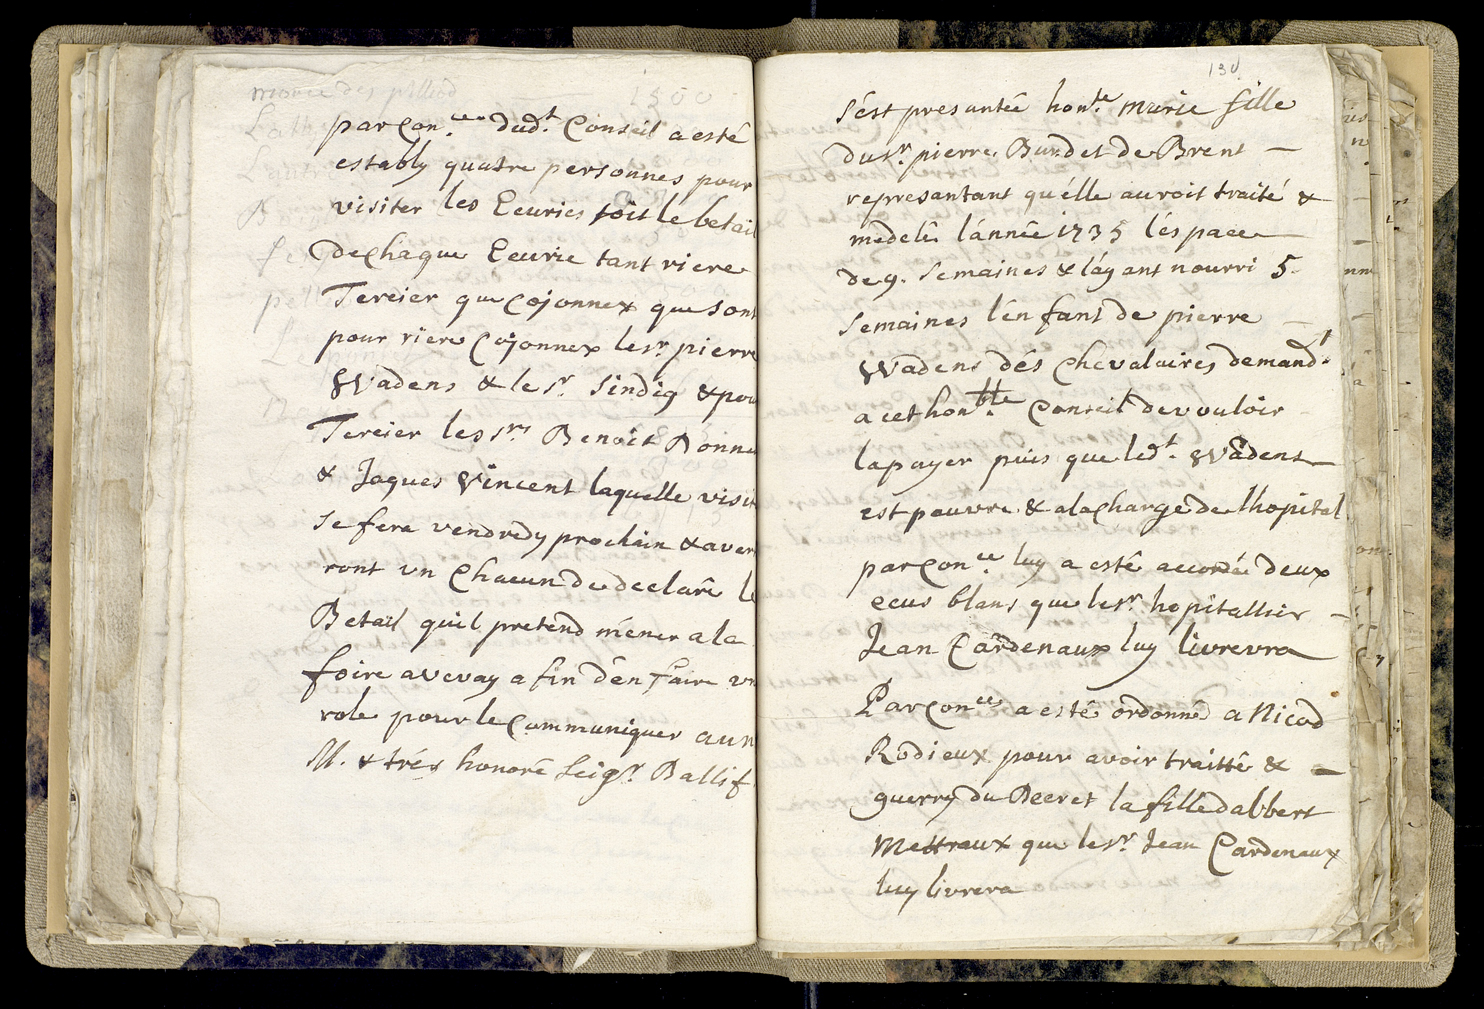 monce des pilliod 1500
parconce dudt Conseil a esté
estably quatre personnes pour
visiter les Ecuries soit le betail
de chaque Ecurie tant riere
Tercier que Cojonnex que sont
pour riere Cojonnex le sr. pierre
Wadens & le sr. Sindiq & pour
Tercier les srs Benoit Donne
& Jaques Vincent laquelle visit
se fera vendredy prochain & aver
ront un Chacun de declaré le
Betail quil pretend méner a la
foire a vevay a fin d'én faire un
role pour le Communiquer au n
M. & trés honoré Seigr. Ballif
130
S'ést presantée honte. marie fille
du sr. pierre Burdet de Brent —
represantant qu'élle auroit traité &
medelé lánnée 1735 l'éspace
de 9. Semaines & láyant nourri 5
Semaines l'énfant de pierre —
Wadens dés Chevalaires demandt.
a cet honble. Conseil de vouloir
la payer puis que ledt. Wadens
est pauvre & a la charge de lhopital
parconce. luy a esté accordée deux
ecus blans que le sr. hopitallier —
Jean Cardenaux luy livrevra
Parconces a esté ordonné a Nicod
Rodieux pour avoir traitté & —
guerry du Decret la fille dabbert
Mettraux que le sr. Jean Cardenaux
luy livrera